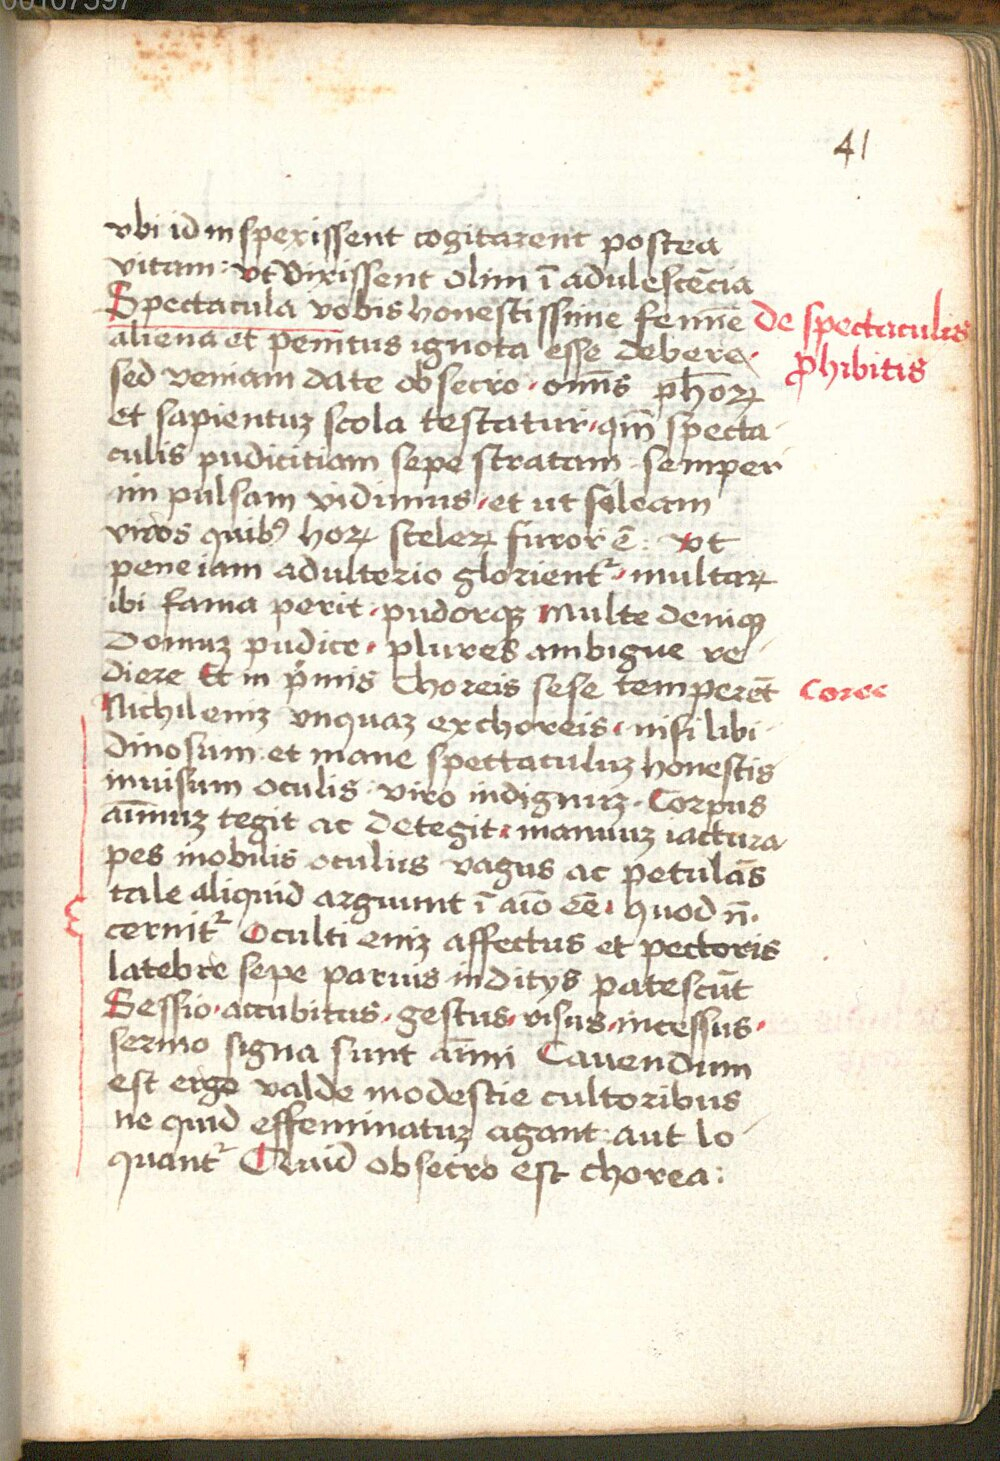 00107597
41
vbi id inspexissent cogitarent postea
vitam: vt vixissent olim ī adulescēcia
Spectacula vobis honestissime femīe
de spectaculis
aliena et penitus ignota esse debere.
ꝓhibitis
sed veniam date obsecro. om̄s ph̄oꝝ
et sapientuꝫ scola testatur, qm̄ specta
culis pudicitiam sepe stratam semper
im pulsam vidimus, et ut soleam
viros quibꝰ hoꝝ sceleꝝ furor ē: vt
pene iam adulterio glorientᷣ, multaꝝ
ibi fama perit, pudorqꝫ Multe deniqꝫ
Domuꝫ pudice, plures ambigue re
diere Et in p̄mis Choreis sese temperēt
Coree
Nichil eniꝫ vnquaꝫ ex choreis, nisi libi
dinosum et inane spectaculuꝫ honestis
inuisum oculis viro indignuꝫ. Corpus
aīmuꝫ tegit ac detegit, manuuꝫ iactura
pes mobilis oculus vagus ac petulās
tale aliquid arguunt ī aīo eē, quod n̄.
cernitᷣ Oculti eniꝫ affectus et pectoris
latebre sepe paruis inditys patescūt
Sessio, accubitus, gestus, risus, incessus,
sermo signa sunt aīmi Cauendum
est ergo valde modestie cultoribus
ne quid effeminatuꝫ agant aut lo
quantᷣ Quid obsecro est chorea: